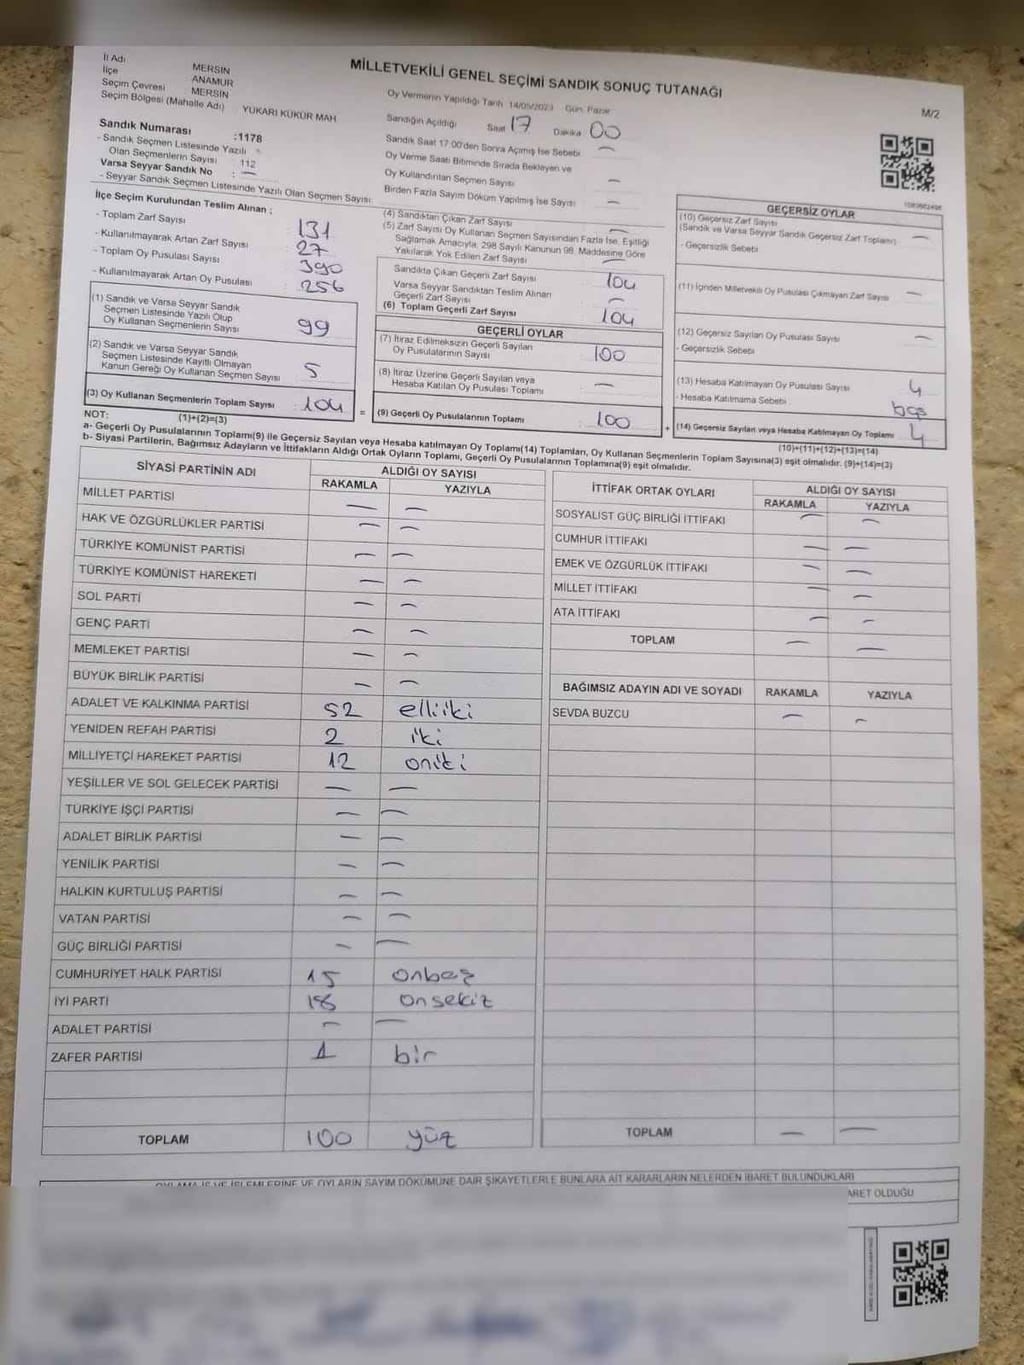 İl Adı MERSIN
İlçe ANAMUR
Seçim Çevresi MERSIN
Seçim Bölgesi (Mahalle Adı) YUKARI KÜKÜR MAH
Sandık Numarası :1178
- Sandık Seçmen Listesinde Yazılı
Olan Seçmenlerin Sayısı 112
Varsa Seyyar Sandık No : —
- Seyyar Sandık Seçmen Listesinde Yazılı Olan Seçmen Sayısı:
MİLLETVEKİLİ GENEL SEÇİMİ SANDIK SONUÇ TUTANAĞI
M/2
Oy Vermenin Yapıldığı Tarih 14/05/2023 Gün Pazar
Sandığın Açıldığı Saat 17 Dakika 00
Sandık Saat 17:00'den Sonra Açılmış İse Sebebi —
Oy Verme Saati Bitiminde Sırada Bekleyen ve
Oy Kullandırılan Seçmen Sayısı —
Birden Fazla Sayım Döküm Yapılmış İse Sayısı —
İlçe Seçim Kurulundan Teslim Alınan ;
- Toplam Zarf Sayısı 131
- Kullanılmayarak Artan Zarf Sayısı 27
- Toplam Oy Pusulası Sayısı 390
- Kullanılmayarak Artan Oy Pusulası : 256
(1) Sandık ve Varsa Seyyar Sandık
Seçmen Listesinde Yazılı Olup
Oy Kullanan Seçmenlerin Sayısı 99
(2) Sandık ve Varsa Seyyar Sandık
Seçmen Listesinde Kayıtlı Olmayan
Kanun Gereği Oy Kullanan Seçmen Sayısı 5
(3) Oy Kullanan Seçmenlerin Toplam Sayısı : 104
(1)+(2)=(3)
(4) Sandıktan Çıkan Zarf Sayısı —
(5) Zarf Sayısı Oy Kullanan Seçmen Sayısından Fazla İse, Eşitliği
Sağlamak Amacıyla, 298 Sayılı Kanunun 98. Maddesine Göre
Yakılarak Yok Edilen Zarf Sayısı —
Sandıkta Çıkan Geçerli Zarf Sayısı 104
Varsa Seyyar Sandıktan Teslim Alınan
Geçerli Zarf Sayısı —
(6) Toplam Geçerli Zarf Sayısı 104
GEÇERLİ OYLAR
(7) İtiraz Edilmeksizin Geçerli Sayılan
Oy Pusulalarının Sayısı 100
(8) İtiraz Üzerine Geçerli Sayılan veya
Hesaba Katılan Oy Pusulası Toplamı —
= (9) Geçerli Oy Pusulalarının Toplamı 100
GEÇERSİZ OYLAR
(10) Geçersiz Zarf Sayısı
(Sandık ve Varsa Seyyar Sandık Geçersiz Zarf Toplamı) —
- Geçersizlik Sebebi
(11) İçinden Milletvekili Oy Pusulası Çıkmayan Zarf Sayısı —
(12) Geçersiz Sayılan Oy Pusulası Sayısı —
- Geçersizlik Sebebi
(13) Hesaba Katılmayan Oy Pusulası Sayısı 4
- Hesaba Katılmama Sebebi boş
+ (14) Geçersiz Sayılan veya Hesaba Katılmayan Oy Toplamı 4
(10)+(11)+(12)+(13)=(14)
NOT:
a- Geçerli Oy Pusulalarının Toplamı(9) ile Geçersiz Sayılan veya Hesaba katılmayan Oy Toplamı(14) Toplamları, Oy Kullanan Seçmenlerin Toplam Sayısına(3) eşit olmalıdır. (9)+(14)=(3)
b- Siyasi Partilerin, Bağımsız Adayların ve İttifakların Aldığı Ortak Oyların Toplamı, Geçerli Oy Pusulalarının Toplamına(9) eşit olmalıdır.
SİYASİ PARTİNİN ADI ALDIĞI OY SAYISI
RAKAMLA YAZIYLA
MİLLET PARTİSİ — —
HAK VE ÖZGÜRLÜKLER PARTİSİ — —
TÜRKİYE KOMÜNİST PARTİSİ — —
TÜRKİYE KOMÜNİST HAREKETİ — —
SOL PARTİ — —
GENÇ PARTİ — —
MEMLEKET PARTİSİ — —
BÜYÜK BİRLİK PARTİSİ — —
ADALET VE KALKINMA PARTİSİ 52 elliiki
YENİDEN REFAH PARTİSİ 2 iki
MİLLİYETÇİ HAREKET PARTİSİ 12 oniki
YEŞİLLER VE SOL GELECEK PARTİSİ — —
TÜRKİYE İŞÇİ PARTİSİ — —
ADALET BİRLİK PARTİSİ — —
YENİLİK PARTİSİ — —
HALKIN KURTULUŞ PARTİSİ — —
VATAN PARTİSİ — —
GÜÇ BİRLİĞİ PARTİSİ — —
CUMHURİYET HALK PARTİSİ 15 onbeş
İYİ PARTİ 18 onsekiz
ADALET PARTİSİ — —
ZAFER PARTİSİ 1 bir
TOPLAM 100 yüz
İTTİFAK ORTAK OYLARI ALDIĞI OY SAYISI
RAKAMLA YAZIYLA
SOSYALİST GÜÇ BİRLİĞİ İTTİFAKI — —
CUMHUR İTTİFAKI — —
EMEK VE ÖZGÜRLÜK İTTİFAKI — —
MİLLET İTTİFAKI — —
ATA İTTİFAKI — —
TOPLAM — —
BAĞIMSIZ ADAYIN ADI VE SOYADI RAKAMLA YAZIYLA
SEVDA BUZCU — —
TOPLAM — —
OYLAMA İŞ VE İŞLEMLERİNE VE OYLARIN SAYIM DÖKÜMÜNE DAİR ŞİKAYETLERLE BUNLARA AİT KARARLARIN NELERDEN İBARET BULUNDUKLARI
OLDUĞU